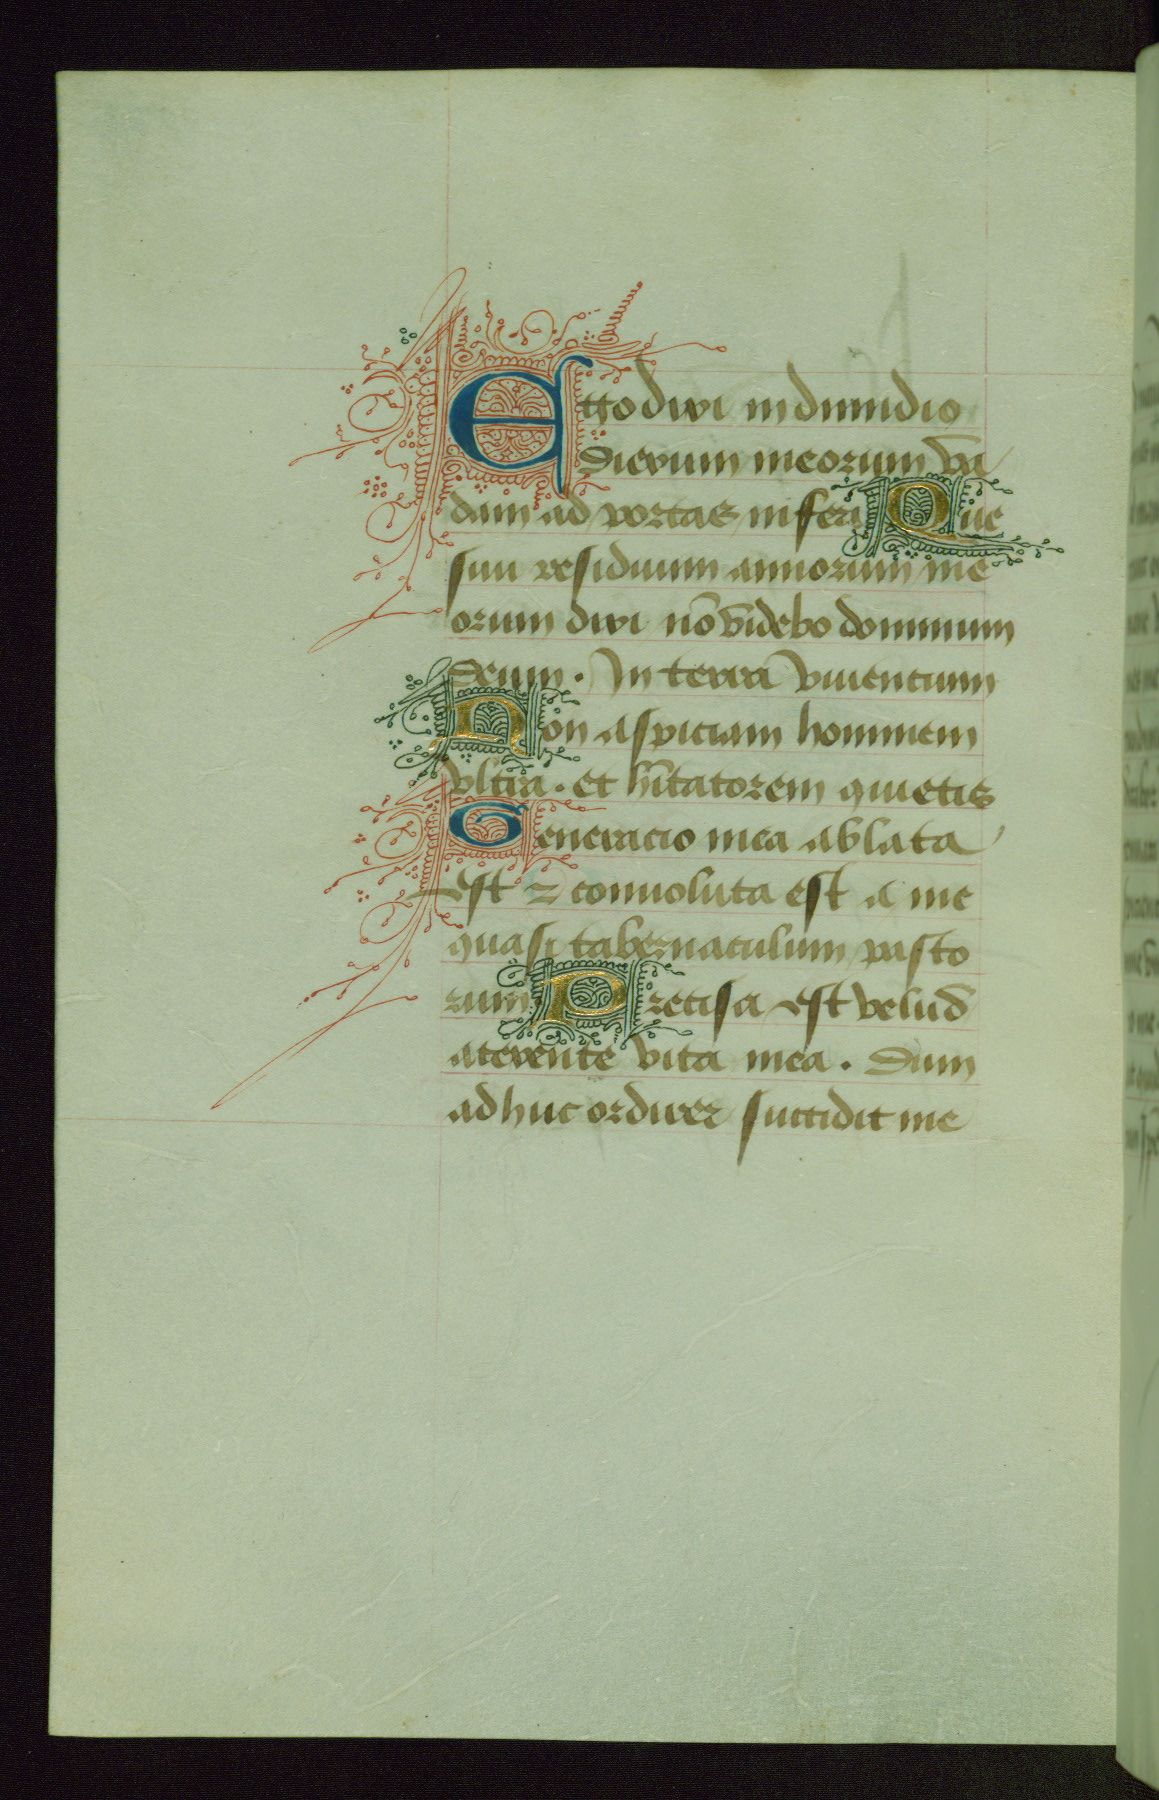 Ego dixi in dimidio
dierum meorum va
dam ad portas inferi Que
sivi residuum annorum me
orum dixi nō videbo dominum
deum. In terra viuentium
Non aspiciam hominem
vltra. et hītatorem quietis
Generacio mea ablata
est ⁊ conuoluta est a me
quasi tabernaculum pasto
rum. Precisa est velud
a texente vita mea. Dum
adhuc ordirer succidit me